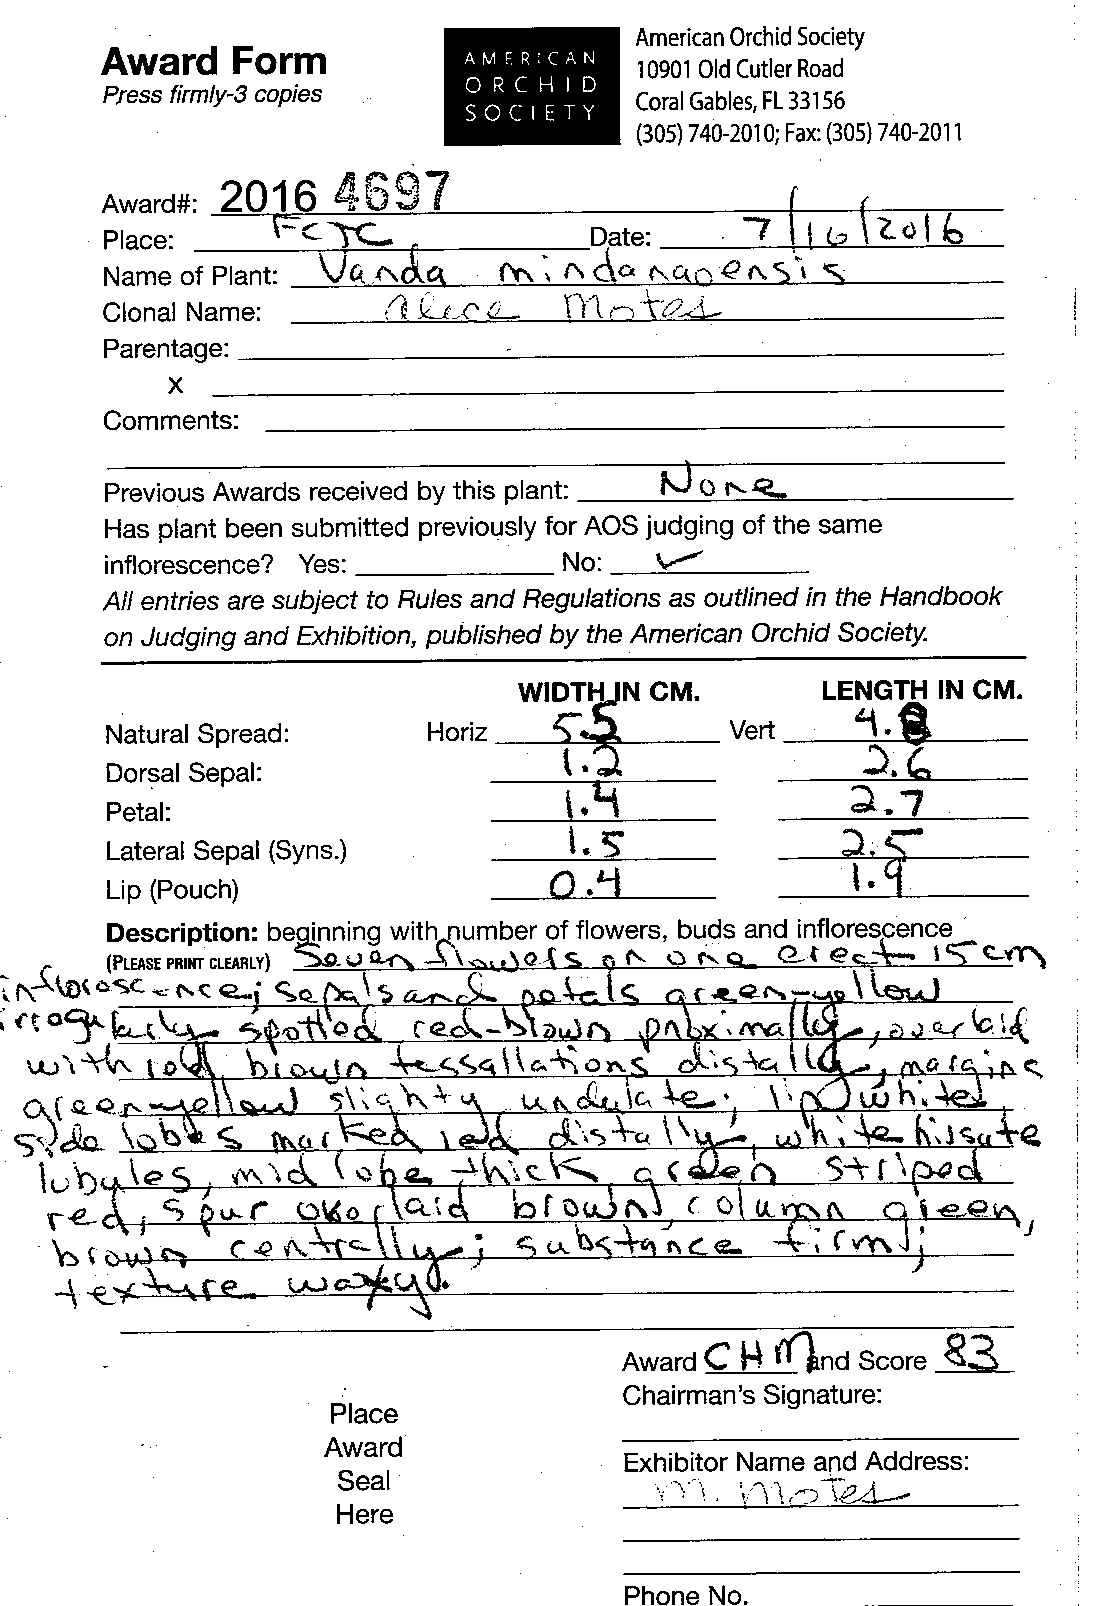 Award Form
Press firmly-3 copies
AMERICAN
ORCHID
SOCIETY
American Orchid Society
10901 Old Cutler Road
Coral Gables, FL 33156
(305) 740-2010; Fax: (305) 740-2011
Award#: 2016 4697
Place: FCJC Date: 7/16/2016
Name of Plant: Vanda mindanaoensis
Clonal Name: Alice Motes
Parentage:
x
Comments:
Previous Awards received by this plant: None
Has plant been submitted previously for AOS judging of the same
inflorescence? Yes: No: ✓
All entries are subject to Rules and Regulations as outlined in the Handbook
on Judging and Exhibition, published by the American Orchid Society.
WIDTH IN CM. LENGTH IN CM.
Natural Spread: Horiz 5.5 Vert 4.8
Dorsal Sepal: 1.2 2.6
Petal: 1.4 2.7
Lateral Sepal (Syns.) 1.5 2.5
Lip (Pouch) 0.4 1.9
Description: beginning with number of flowers, buds and inflorescence
(PLEASE PRINT CLEARLY) Seven flowers on one erect 15 cm
inflorescence; sepals and petals green-yellow
irregularly spotted red-brown proximally, overlaid
with red brown tessallations distally, margins
green-yellow slighty undulate; lip white,
side lobes marked red distally, white hirsute
lobules, mid lobe thick green striped
red, spur overlaid brown, column green,
brown centrally; substance firm;
texture waxy.
Award CHM and Score 83
Chairman's Signature:
Place
Award
Seal
Here
Exhibitor Name and Address:
M. Motes
Phone No.